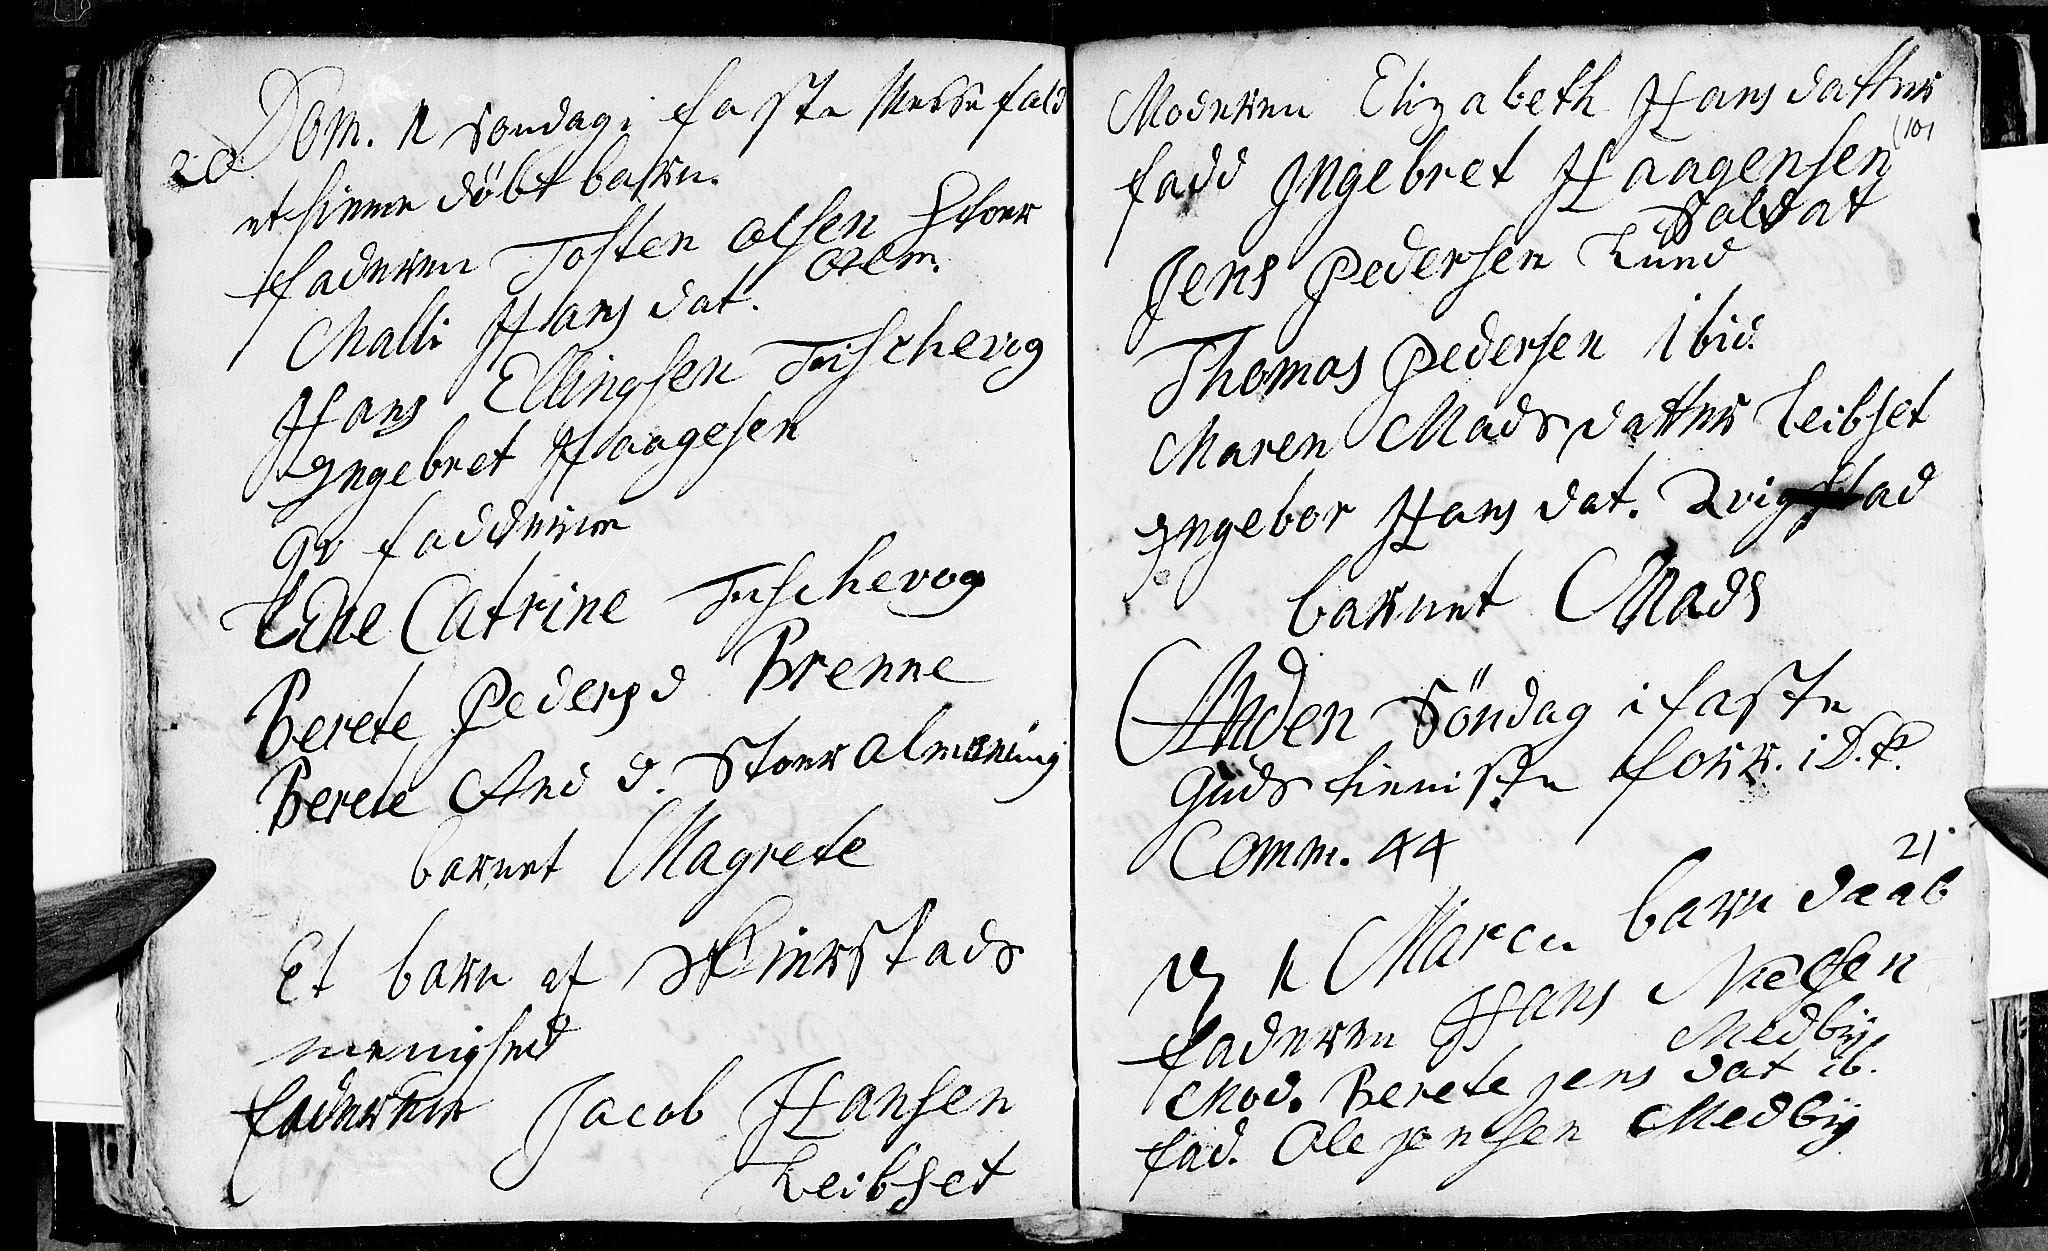 Dom. 1 Söndag i faste Messefald
20
et hieme döbt barn.
faderen Tosten Olsen Stoer
Malli Hans dat.
Hans Ellingsen Fischevog
Yngebret Haagesen
qv fadderne
Edle Catrine Fischevog
Berete Pedersd Brenne
Berete And d. Stoer almening
barnet Magrete
Et barn af Skierstads
menighed
faderen Jacob Hansen
Leibset
Moderen Elizabeth Hans datter
101
fadd Yngebret Haagensen
Soldat
Jens Pedersen Lund
Thomas Pedersen ibid.
Maren Mads datter Leibset
Yngebor Hans dat.
barnet Mads
Anden Söndag i faste
Guds tieniste forr. i B. K.
Comm. 44
21
D 1 Marcii barn daab
faderen Hans Nielsen
Medbÿ
Mod. Berete Jens dat ib.
fad. Ole Jensen Medbÿ